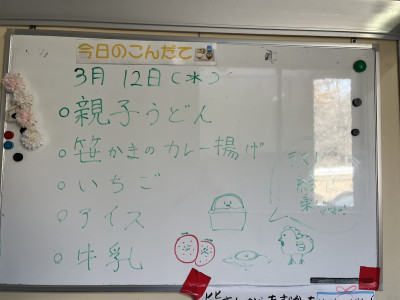 今日のこんだて
3月 12日(水)
○親子うどん
○笹かまのカレー揚げ
○いちご
○アイス
○牛乳